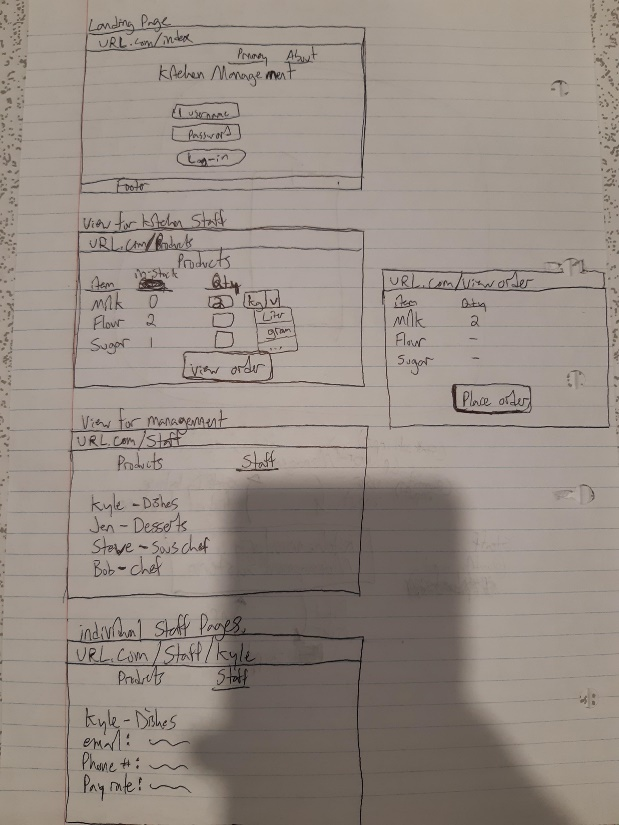 Landing Page
URL.com/index
Primary About
Kitchen Management
username
Password
Log-in
Footer
View for Kitchen Staff
URL.com/Products
Products
item in-stock Qty
Milk 0 2 kg
Flour 2 Litr
gram
Sugar 1 ...
View order
URL.com/view order
item Qty
Milk 2
Flour -
Sugar -
Place order
View for management
URL.com/Staff
Products Staff
Kyle - Dishes
Jen - Desserts
Steve - Sous chef
Bob - chef
individual Staff Pages.
URL.com/Staff/Kyle
Products Staff
Kyle - Dishes
email:
Phone #:
Pay rate: